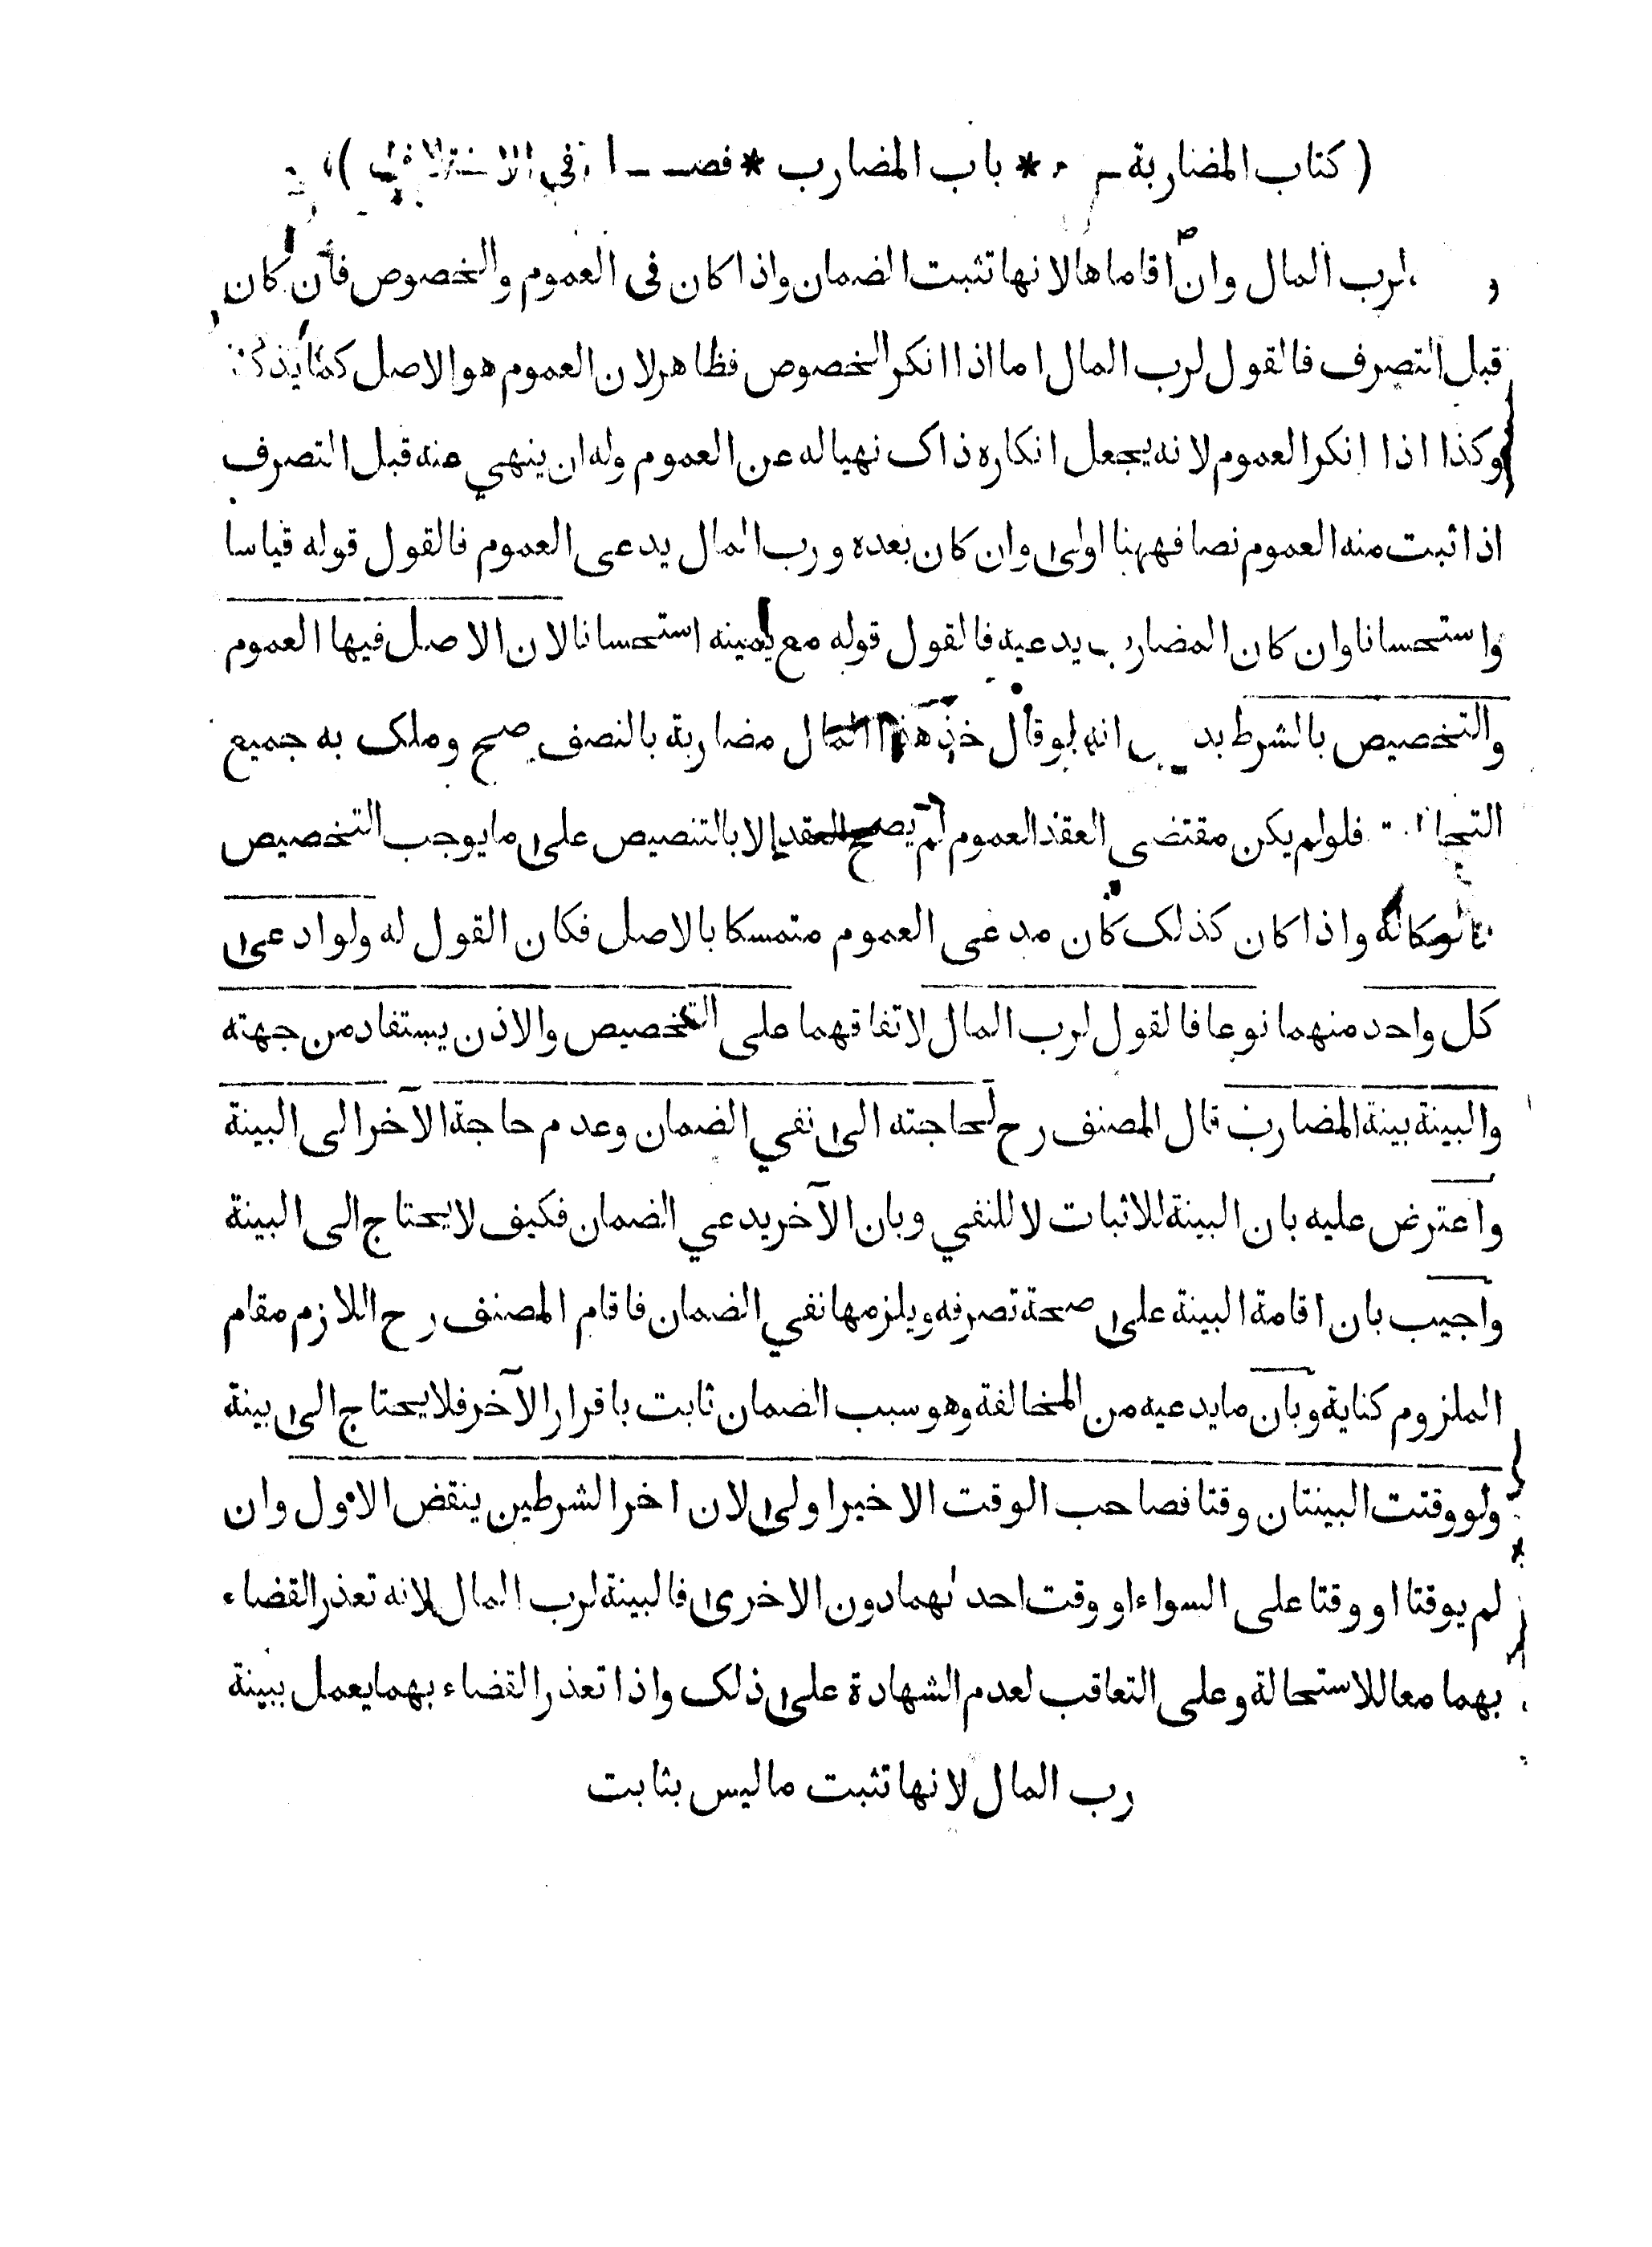 ( كتاب المضاربة * باب المضارب * فصـــل في الاختلاف )
لرب المال وان اقاماها لانها تثبت الضمان واذا كان فى العموم والخصوص فان كان
قبل التصرف فالقول لرب المال اما اذا انكر الخصوص فظاهر لان العموم هو الاصل كما يذكر
وكذا اذا انكر العموم لانه يجعل انكاره ذاك نهيا له عن العموم وله ان ينهي عنه قبل التصرف
اذا ثبت منه العموم نصا فههنا اولى وان كان بعده ورب المال يدعى العموم فالقول قوله قياسا
واستحسانا وان كان المضارب يدعيه فالقول قوله مع يمينه استحسانا لان الاصل فيها العموم
والتخصيص بالشرط انه لو قال خذ هذا المال مضاربة بالنصف صح وملك به جميع
فلو لم يكن مقتضى العقد العموم لم يصح العقد الا بالتنصيص على ما يوجب التخصيص
كالوكالة واذا كان كذلك كان مدعى العموم متمسكا بالاصل فكان القول له ولو ادعى
كل واحد منهما نوعا فالقول لرب المال لاتفاقهما على التخصيص والاذن يستفاد من جهته
والبينة بينة المضارب قال المصنف رح لحاجته الى نفي الضمان وعدم حاجة الآخر الى البينة
واعترض عليه بان البينة للاثبات لا للنفي وبان الآخر يدعي الضمان فكيف لا يحتاج الى البينة
واجيب بان اقامة البينة على صحة تصرفه ويلزمها نفي الضمان فاقام المصنف رح اللازم مقام
الملزوم كناية وبان ما يدعيه من المخالفة وهو سبب الضمان ثابت باقرار الآخر فلا يحتاج الى بينة
ولو وقتت البينتان وقتا فصاحب الوقت الاخير اولى لان اخر الشرطين ينقض الاول وان
لم يوقتا او وقتا على السواء او وقت احدٮهما دون الاخرى فالبينة لرب المال لانه تعذر القضاء
بهما معا للاستحالة وعلى التعاقب لعدم الشهادة على ذلك واذا تعذر القضاء بهما يعمل ببينة
رب المال لانها تثبت ما ليس بثابت